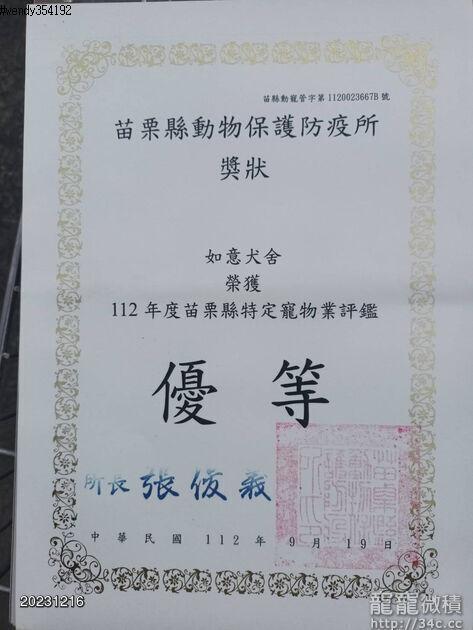 #wendy354192
苗縣動寵管字第1120023667B號
苗栗縣動物保護防疫所
獎狀
如意犬舍
榮獲
112年度苗栗縣特定寵物業評鑑
優等
所長 張俊義
中華民國 112 年 9 月 19 日
20231216
龍龍微積
http://34c.cc